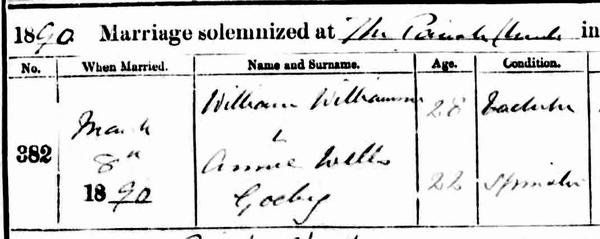 1890 Marriage solemnized at The Parish Church in
No. When Married. Name and Surname. Age. Condition.
382 March 8th 1890
William Williamson 28 Bachelor
&
Annie Wells 22 Spinster